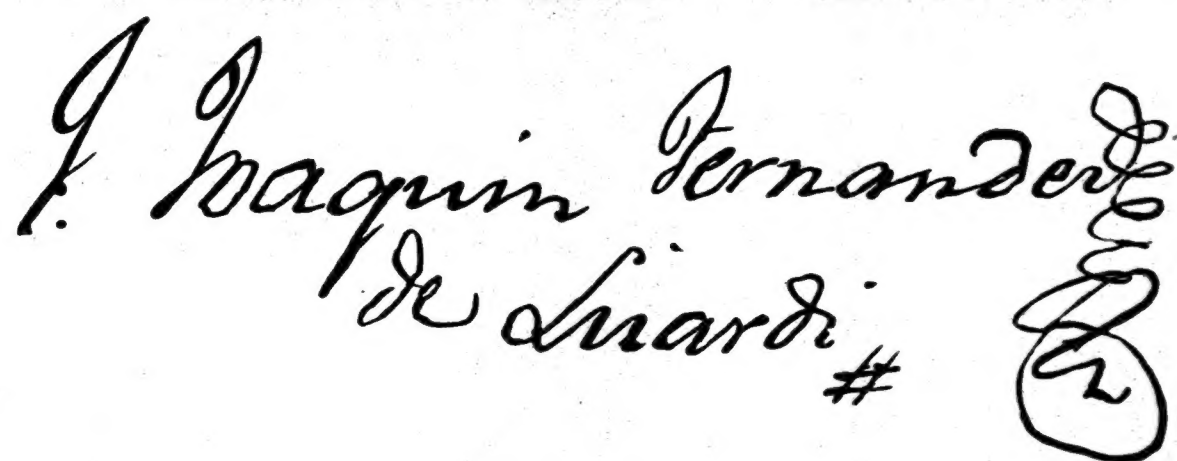 J. Joaquin Fernandez
de Lizardi #